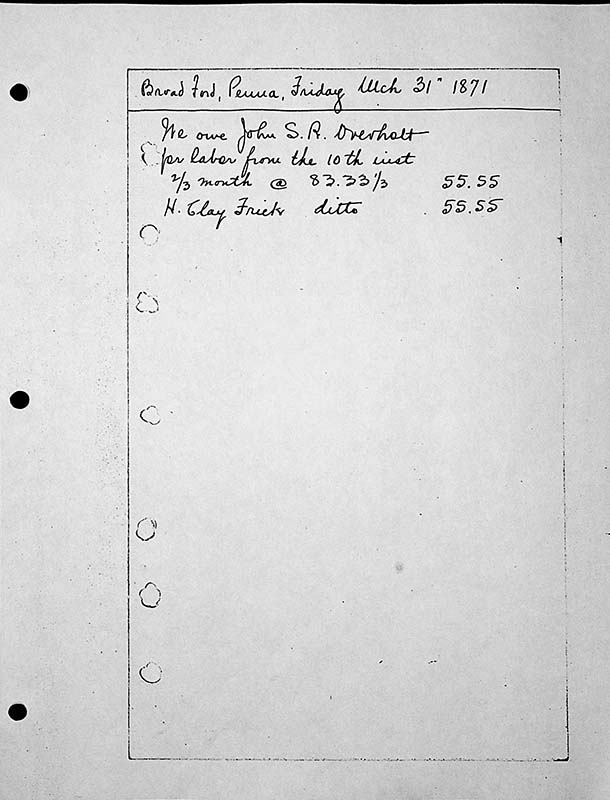 Broad Ford, Penna, Friday Mch 31" 1871
We owe John S. R. Overholt
pr labor from the 10th inst
2/3 month @ 83.33 1/3 55.55
H. Clay Frick ditto 55.55